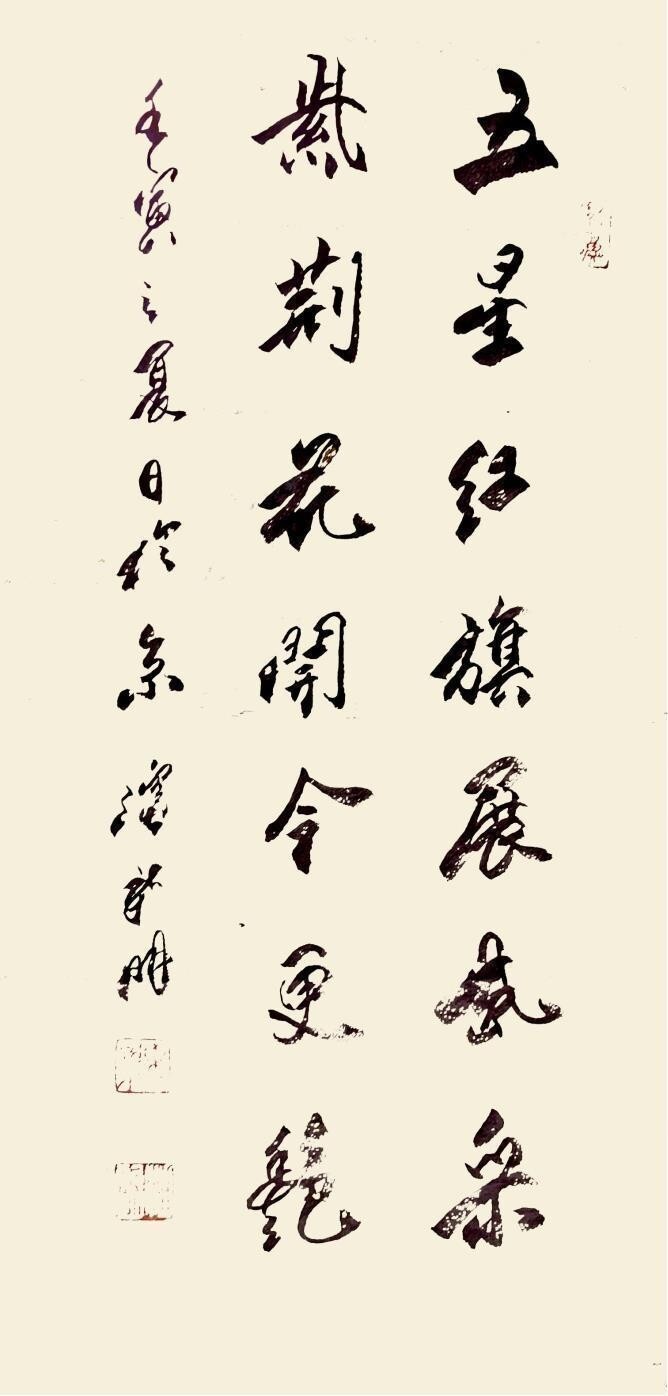 五星紅旗展風采
紫荊花開今更艷
壬寅之夏日於京